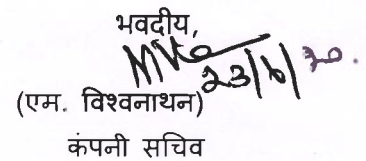 भवदीय,
23/6/20.
(एम. विश्वनाथन)
कंपनी सचिव